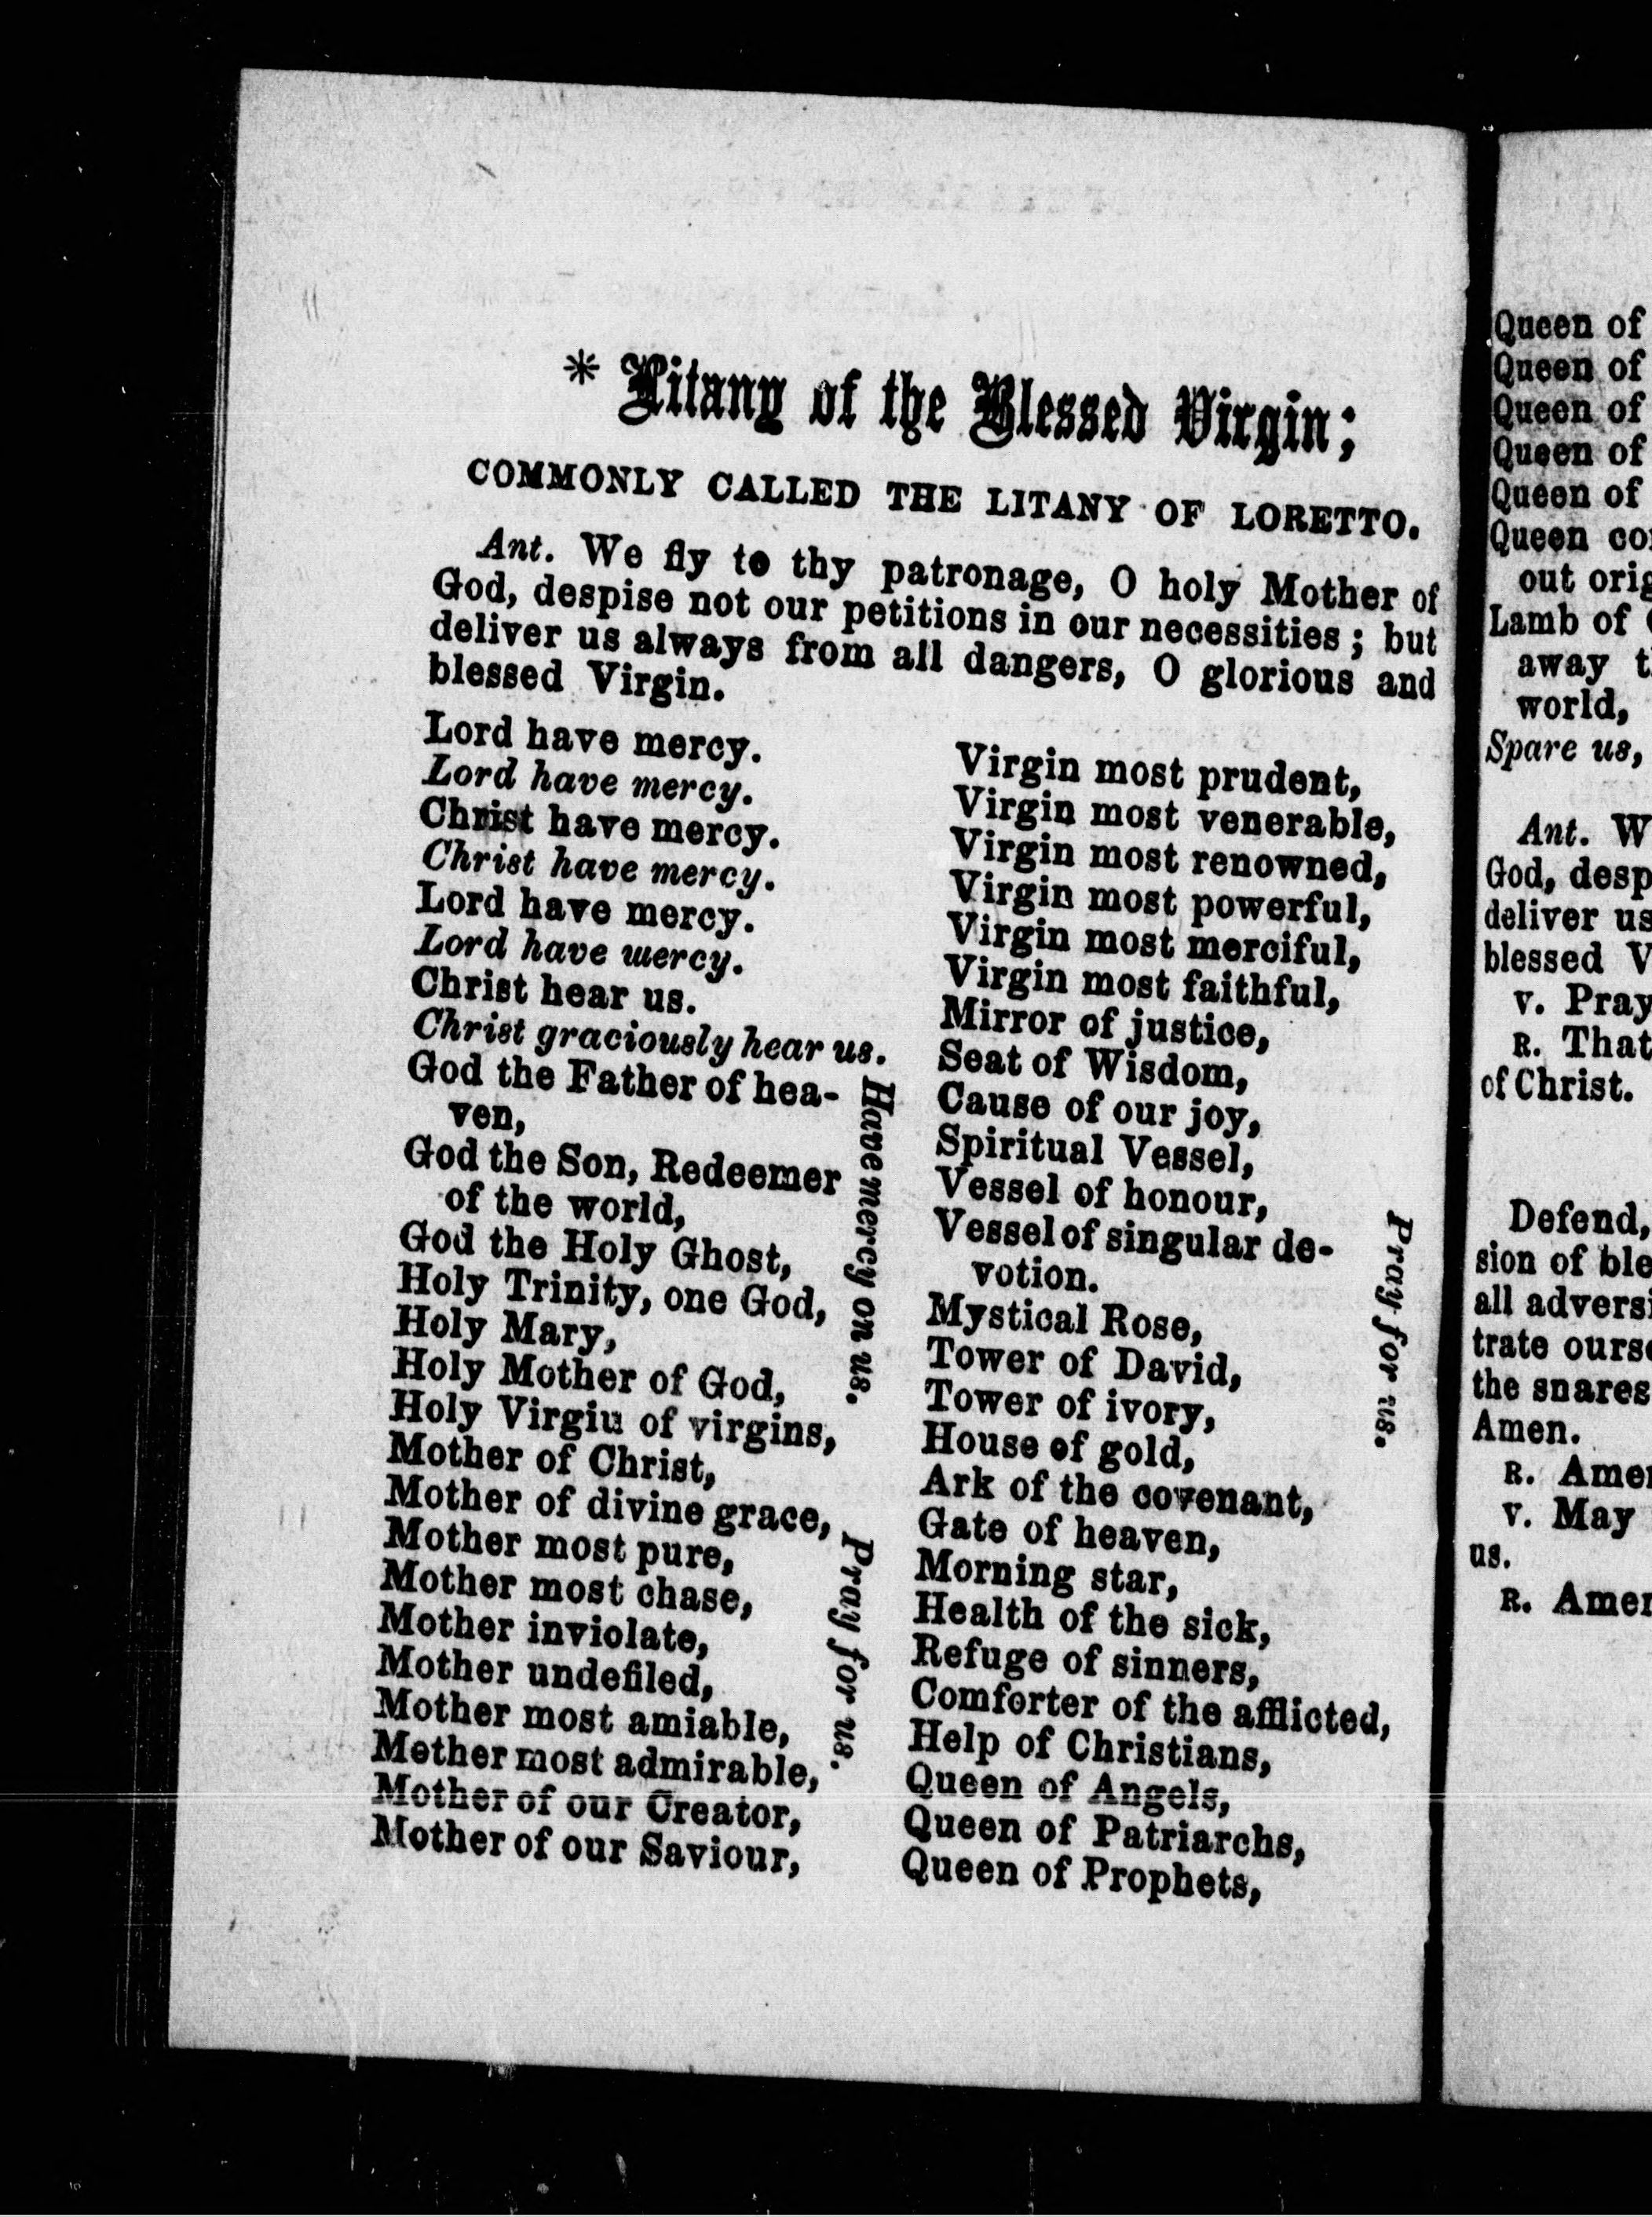 * Litany of the Blessed Virgin;
COMMONLY CALLED THE LITANY OF LORETTO.
Ant. We fly to thy patronage, O holy Mother of
God, despise not our petitions in our necessities; but
deliver us always from all dangers, O glorious and
blessed Virgin.
Lord have mercy.
Lord have mercy.
Christ have mercy.
Christ have mercy.
Lord have mercy.
Lord have mercy.
Christ hear us.
Christ graciously hear us.
God the Father of hea-
ven,
God the Son, Redeemer
of the world,
God the Holy Ghost,
Holy Trinity, one God,
Have mercy on us.
Holy Mary,
Holy Mother of God,
Holy Virgin of virgins,
Mother of Christ,
Mother of divine grace,
Mother most pure,
Mother most chase,
Mother inviolate,
Mother undefiled,
Mother most amiable,
Mother most admirable,
Mother of our Creator,
Mother of our Saviour,
Pray for us.
Virgin most prudent,
Virgin most venerable,
Virgin most renowned,
Virgin most powerful,
Virgin most merciful,
Virgin most faithful,
Mirror of justice,
Seat of Wisdom,
Cause of our joy,
Spiritual Vessel,
Vessel of honour,
Vessel of singular de-
votion.
Mystical Rose,
Tower of David,
Tower of ivory,
House of gold,
Ark of the covenant,
Gate of heaven,
Morning star,
Health of the sick,
Refuge of sinners,
Comforter of the afflicted,
Help of Christians,
Queen of Angels,
Queen of Patriarchs,
Queen of Prophets,
Pray for us.
Queen of
Queen of
Queen of
Queen of
Queen of
Queen
out
Lamb of
away
world,
Spare us,
Ant.
God,
deliver us
blessed
V. Pray
R. That
of Christ.
Defend,
sion of
all
trate
the snares
Amen.
R.
V. May
us.
R.